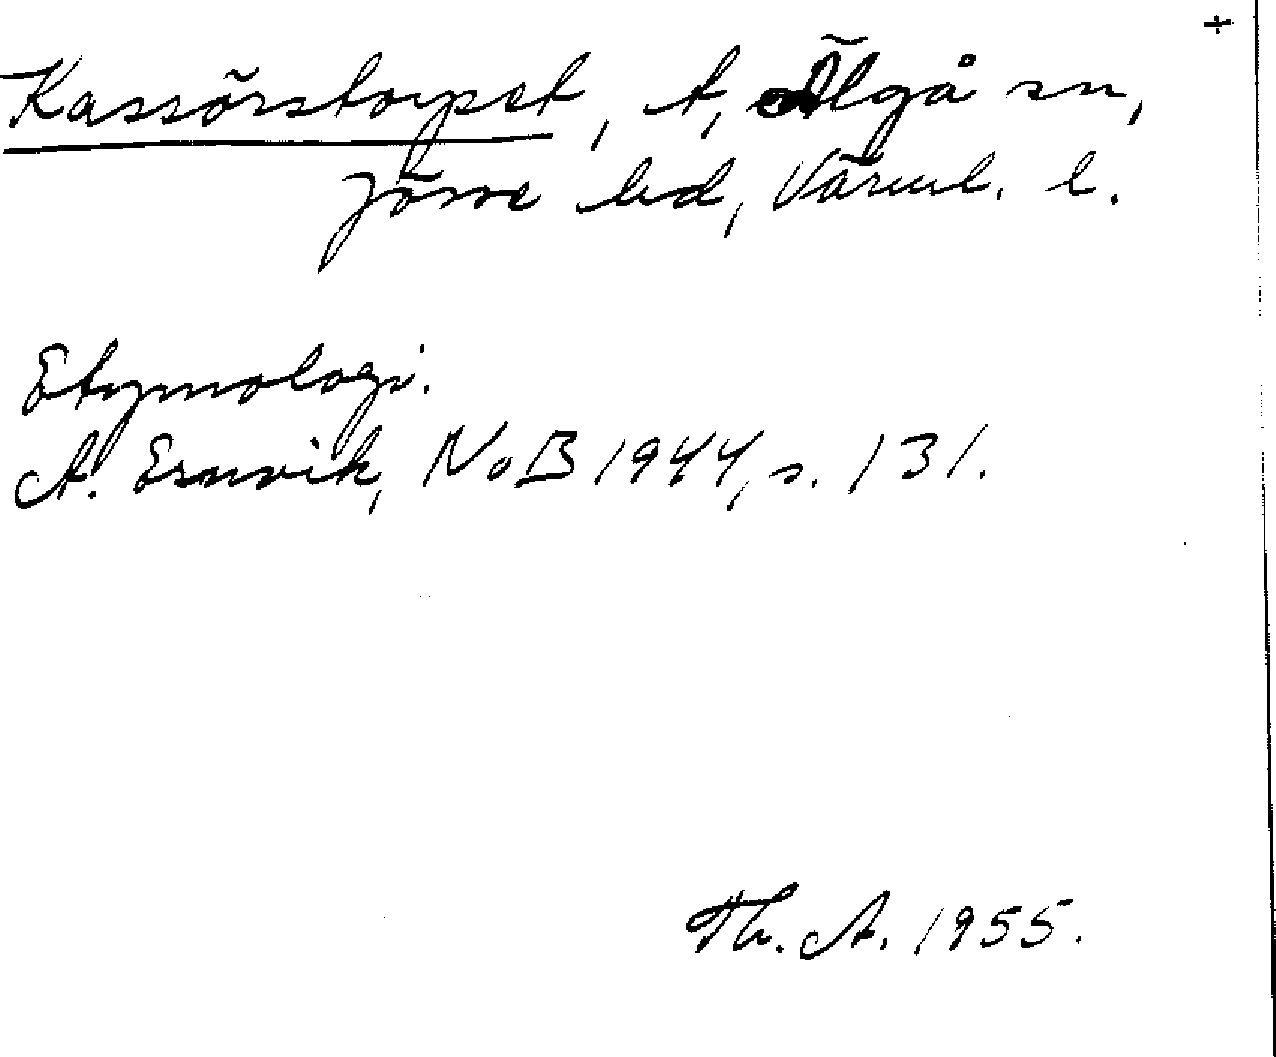 +
Kassörstorpet, t, Älgå sn,
Jösse hd, Värml. l.
Etymologi.
A. Ernvik, NoB 1944, s. 131.
Th. A. 1955.